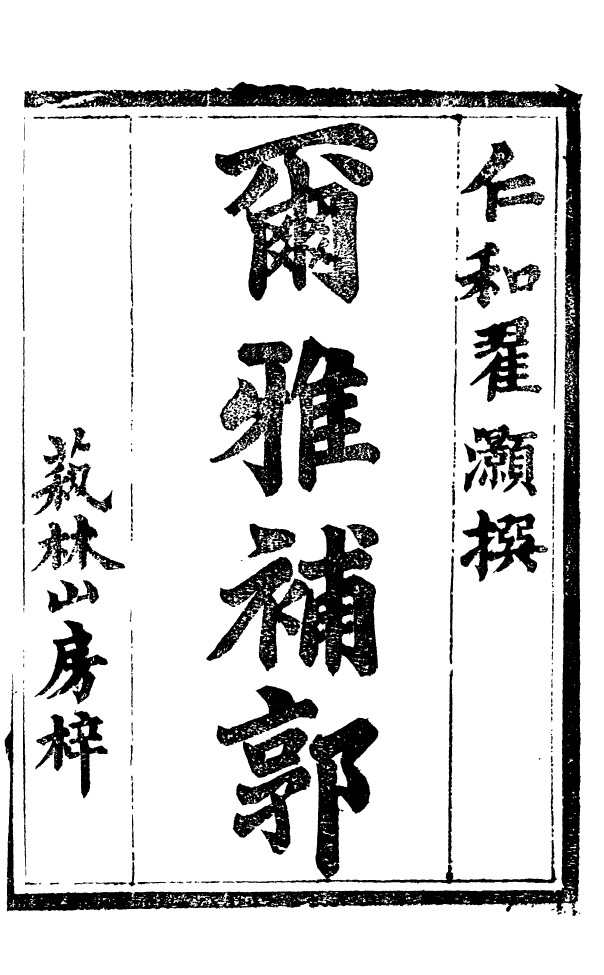 仁和翟灝撰
爾雅補郭
蓺林山房梓